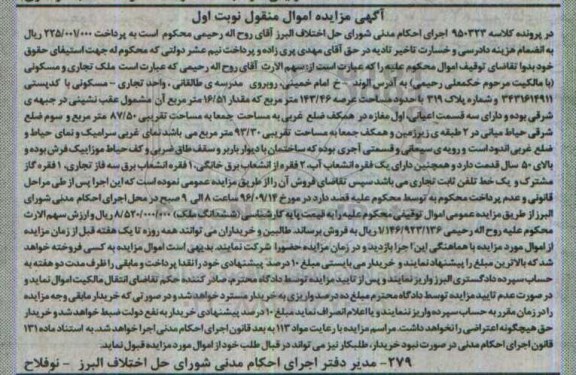 آگهی مزایده اموال منقول نوبت اول
در پرونده کلاسه ۹۵۰۳۲۳ اجرای احکام مدنی شورای حل اختلاف البرز آقای روح اله رحیمی محکوم است به پرداخت ۲۲۵/۰۰۱/۰۰۰ ریال
به انضمام هزینه دادرسی و خسارت تاخیر تادیه در حق آقای مهدی پری زاده و پرداخت نیم عشر دولتی که محکوم له جهت استیفای حقوق
خود بدوا تقاضای توقیف اموال محکوم علیه را که عبارت است از: سهم الارث آقای روح اله رحیمی که عبارت است ملک تجاری و مسکونی
(با مالکیت مرحوم حکمعلی رحیمی) به آدرس الوند - خ امام خمینی، روبروی مدرسه ی طالقانی ، واحد تجاری - مسکونی با کدپستی
۳۴۳۱۶۱۴۹۱۱ و شماره پلاک ۳۱۹ با حدود مساحت عرصه ۱۴۳/۴۶ متر مربع که مقدار ۱۶/۵۱ متر مربع آن مشمول عقب نشینی در جبهه ی
شرقی بوده و دارای سه قسمت اعیانی: اول مغازه در همکف ضلع غربی به مساحت جمعا به مساحت تقریبی ۸۷/۵۰ متر مربع و سوم ضلع
شرقی حیاط مبانی در ۲ طبقه ی زیرزمین و همکف جمعا به مساحت تقریبی ۹۳/۳۰ متر مربع می باشد نمای غربی سرامیک و نمای حیاط و
ضلع غربی اندود است و رویه ی سیمانی و قسمتی آجری بوده که ساختمان با دیوار باربر و سقف طاق ضربی و کف حیاط موزاییک فرش بوده و
بالای ۵۰ سال قدمت دارد و همچنین دارای یک فقره انشعاب آب، ۲ فقره از انشعاب برق خانگی، ۱ فقره انشعاب برق سه فاز تجاری، ۱ فقره گاز
مشترک و یک خط تلفن ثابت تجاری می باشد سپس تقاضای فروش آن را از طریق مزایده عمومی نموده است که این اجرا پس از طی مراحل
قانونی و عدم پرداخت محکوم به توسط محکوم علیه قصد دارد در مورخ ۹۶/۰۹/۱۴ ساعت ۸ الی ۹ صبح در محل اجرای احکام مدنی شورای
البرز از طریق مزایده عمومی اموال توقیفی محکوم علیه را به قیمت پایه کارشناسی (ششدانگ ملک) ۸/۵۲۰/۰۰۰/۰۰۰ ریال و ارزش سهم الارث
محکوم علیه روح اله رحیمی ۱/۱۴۶/۹۲۳/۱۳۶ ریال به فروش برساند. طالبین و خریداران می توانند همه روزه تا یک هفته قبل از زمان مزایده
از اموال مورد مزایده با هماهنگی این اجرا بازدید و در زمان مزایده حضورا شرکت نمایند. بدیهی است اموال مزایده به کسی فروخته خواهد
شد که بالاترین مبلغ را پیشنهاد نمایند و خریدار می بایستی مبلغ ۱۰ درصد پیشنهادی خود را نقدا پرداخت و مابقی را ظرف مدت دو هفته به
حساب سپرده دادگستری البرز واریز نمایند و پس از تایید مزایده توسط دادگاه محترم، صادر کننده حکم تقاضای انتقال مالکیت اموال نماید و
در صورت عدم تایید مزایده توسط دادگاه محترم مبلغ ده درصد واریزی به خریدار مسترد خواهد شد و در صورتی که خریدار مابقی وجه مزایده
را در زمان مقرر به حساب سپرده واریز ننمایند و یا اعلام انصراف نماید مبلغ ۱۰ درصد پیشنهادی خریدار به نفع دولت ضبط خواهد شد و خریدار
حق هیچگونه اعتراضی را نخواهد داشت. مراسم مزایده با رعایت مواد ۱۱۳ به بعد قانون اجرای احکام مدنی اجرا خواهد شد. به استناد ماده ۱۳۱
قانون اجرای احکام مدنی در صورت نبود خریدار، طلبکار نیز می تواند در قبال طلب خود از اموال مورد مزایده قبول نماید.
۲۷۹- مدیر دفتر اجرای احکام مدنی شورای حل اختلاف البرز - نوفلاح